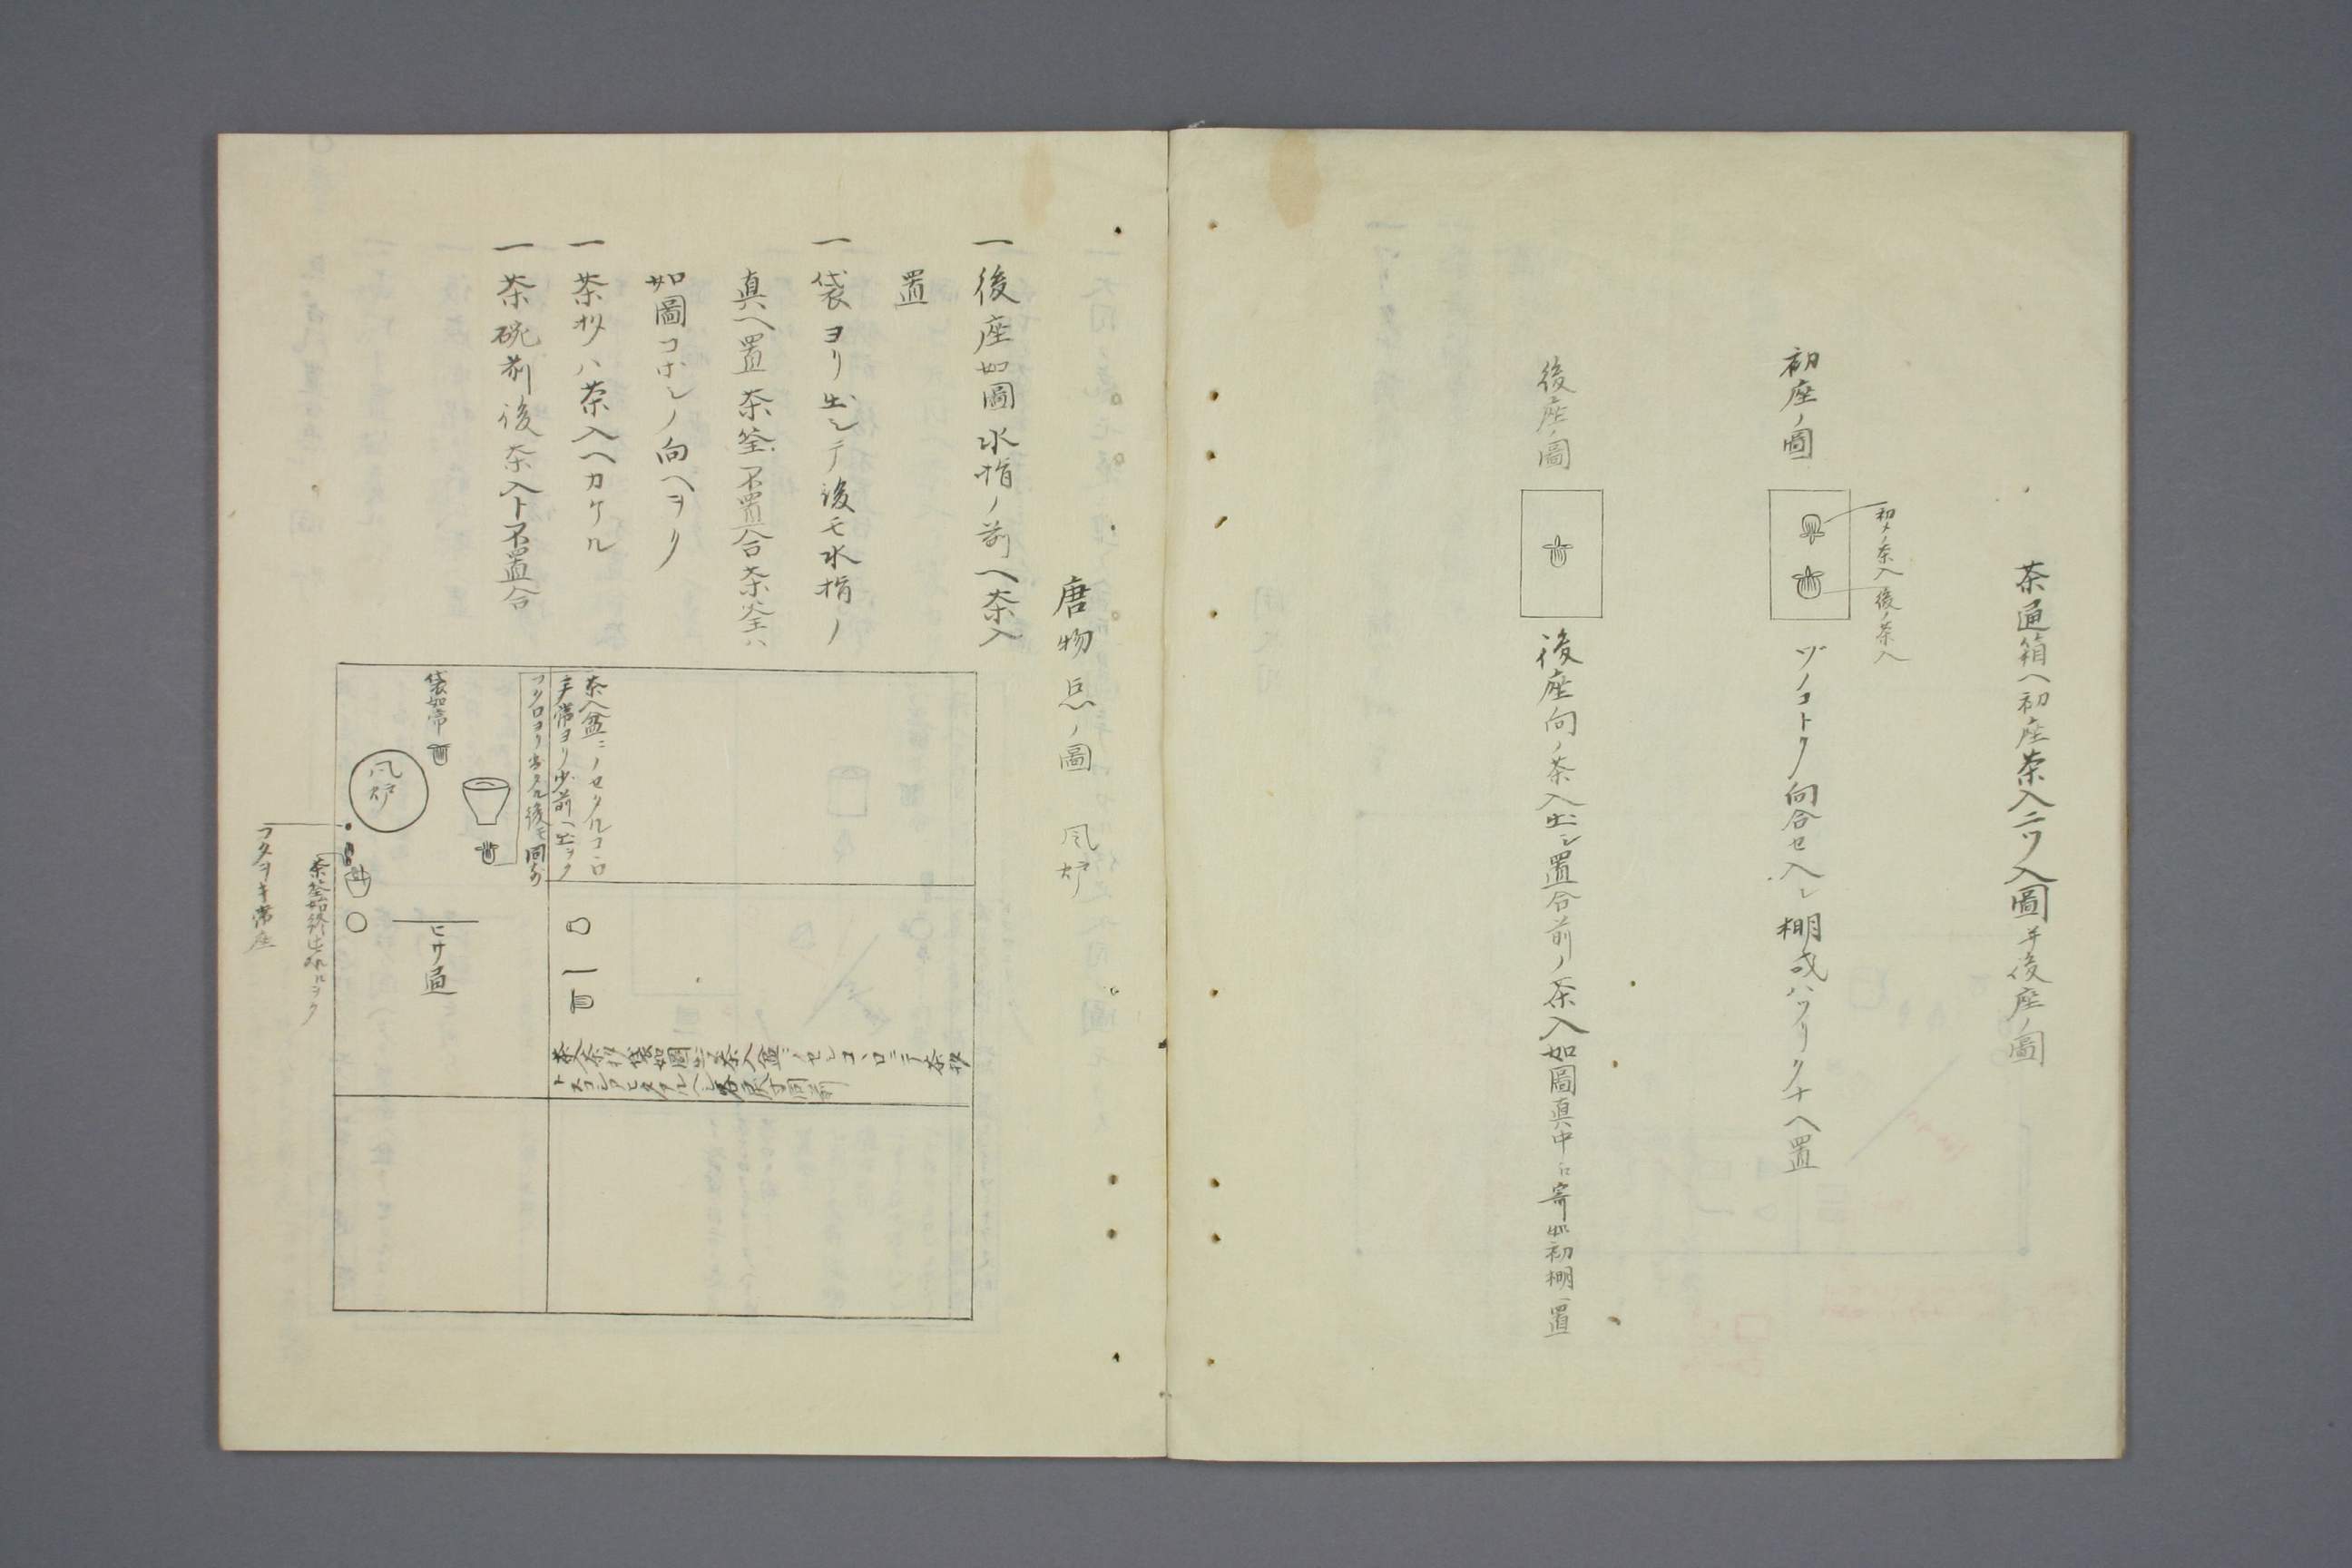 茶通箱ヘ初座茶入二ツ入圖并後座ノ圖
初メノ茶入
後ノ茶入
初座ノ圖
ヅノコトク向合セ入レ棚或ハツリタナヘ置
後座ノ圖
後座向ノ茶入出シ置合前ノ茶入如圖真中ニ寄如初棚ヘ置
唐物点ノ圖 風炉
一後座如圖水指ノ前ヘ茶入
置
一袋ヨリ出シテ後モ水指ノ
真ヘ置茶筌不置合茶筌ハ
如圖コホシノ向ヘヲク
一茶杓ハ茶入ヘカケル
一茶碗前後茶入ト不置合
茶入盆ニノセタルコロ
主常ヨリ少前ヘ出ヲク
フクロヨリ出タル後モ同前
袋如常
風炉
ヒサ通
茶筌始終此所ニヲク
フタヲキ常座
茶入茶杓袋如圖出ス茶入盆ニノセシコロニテ茶杓